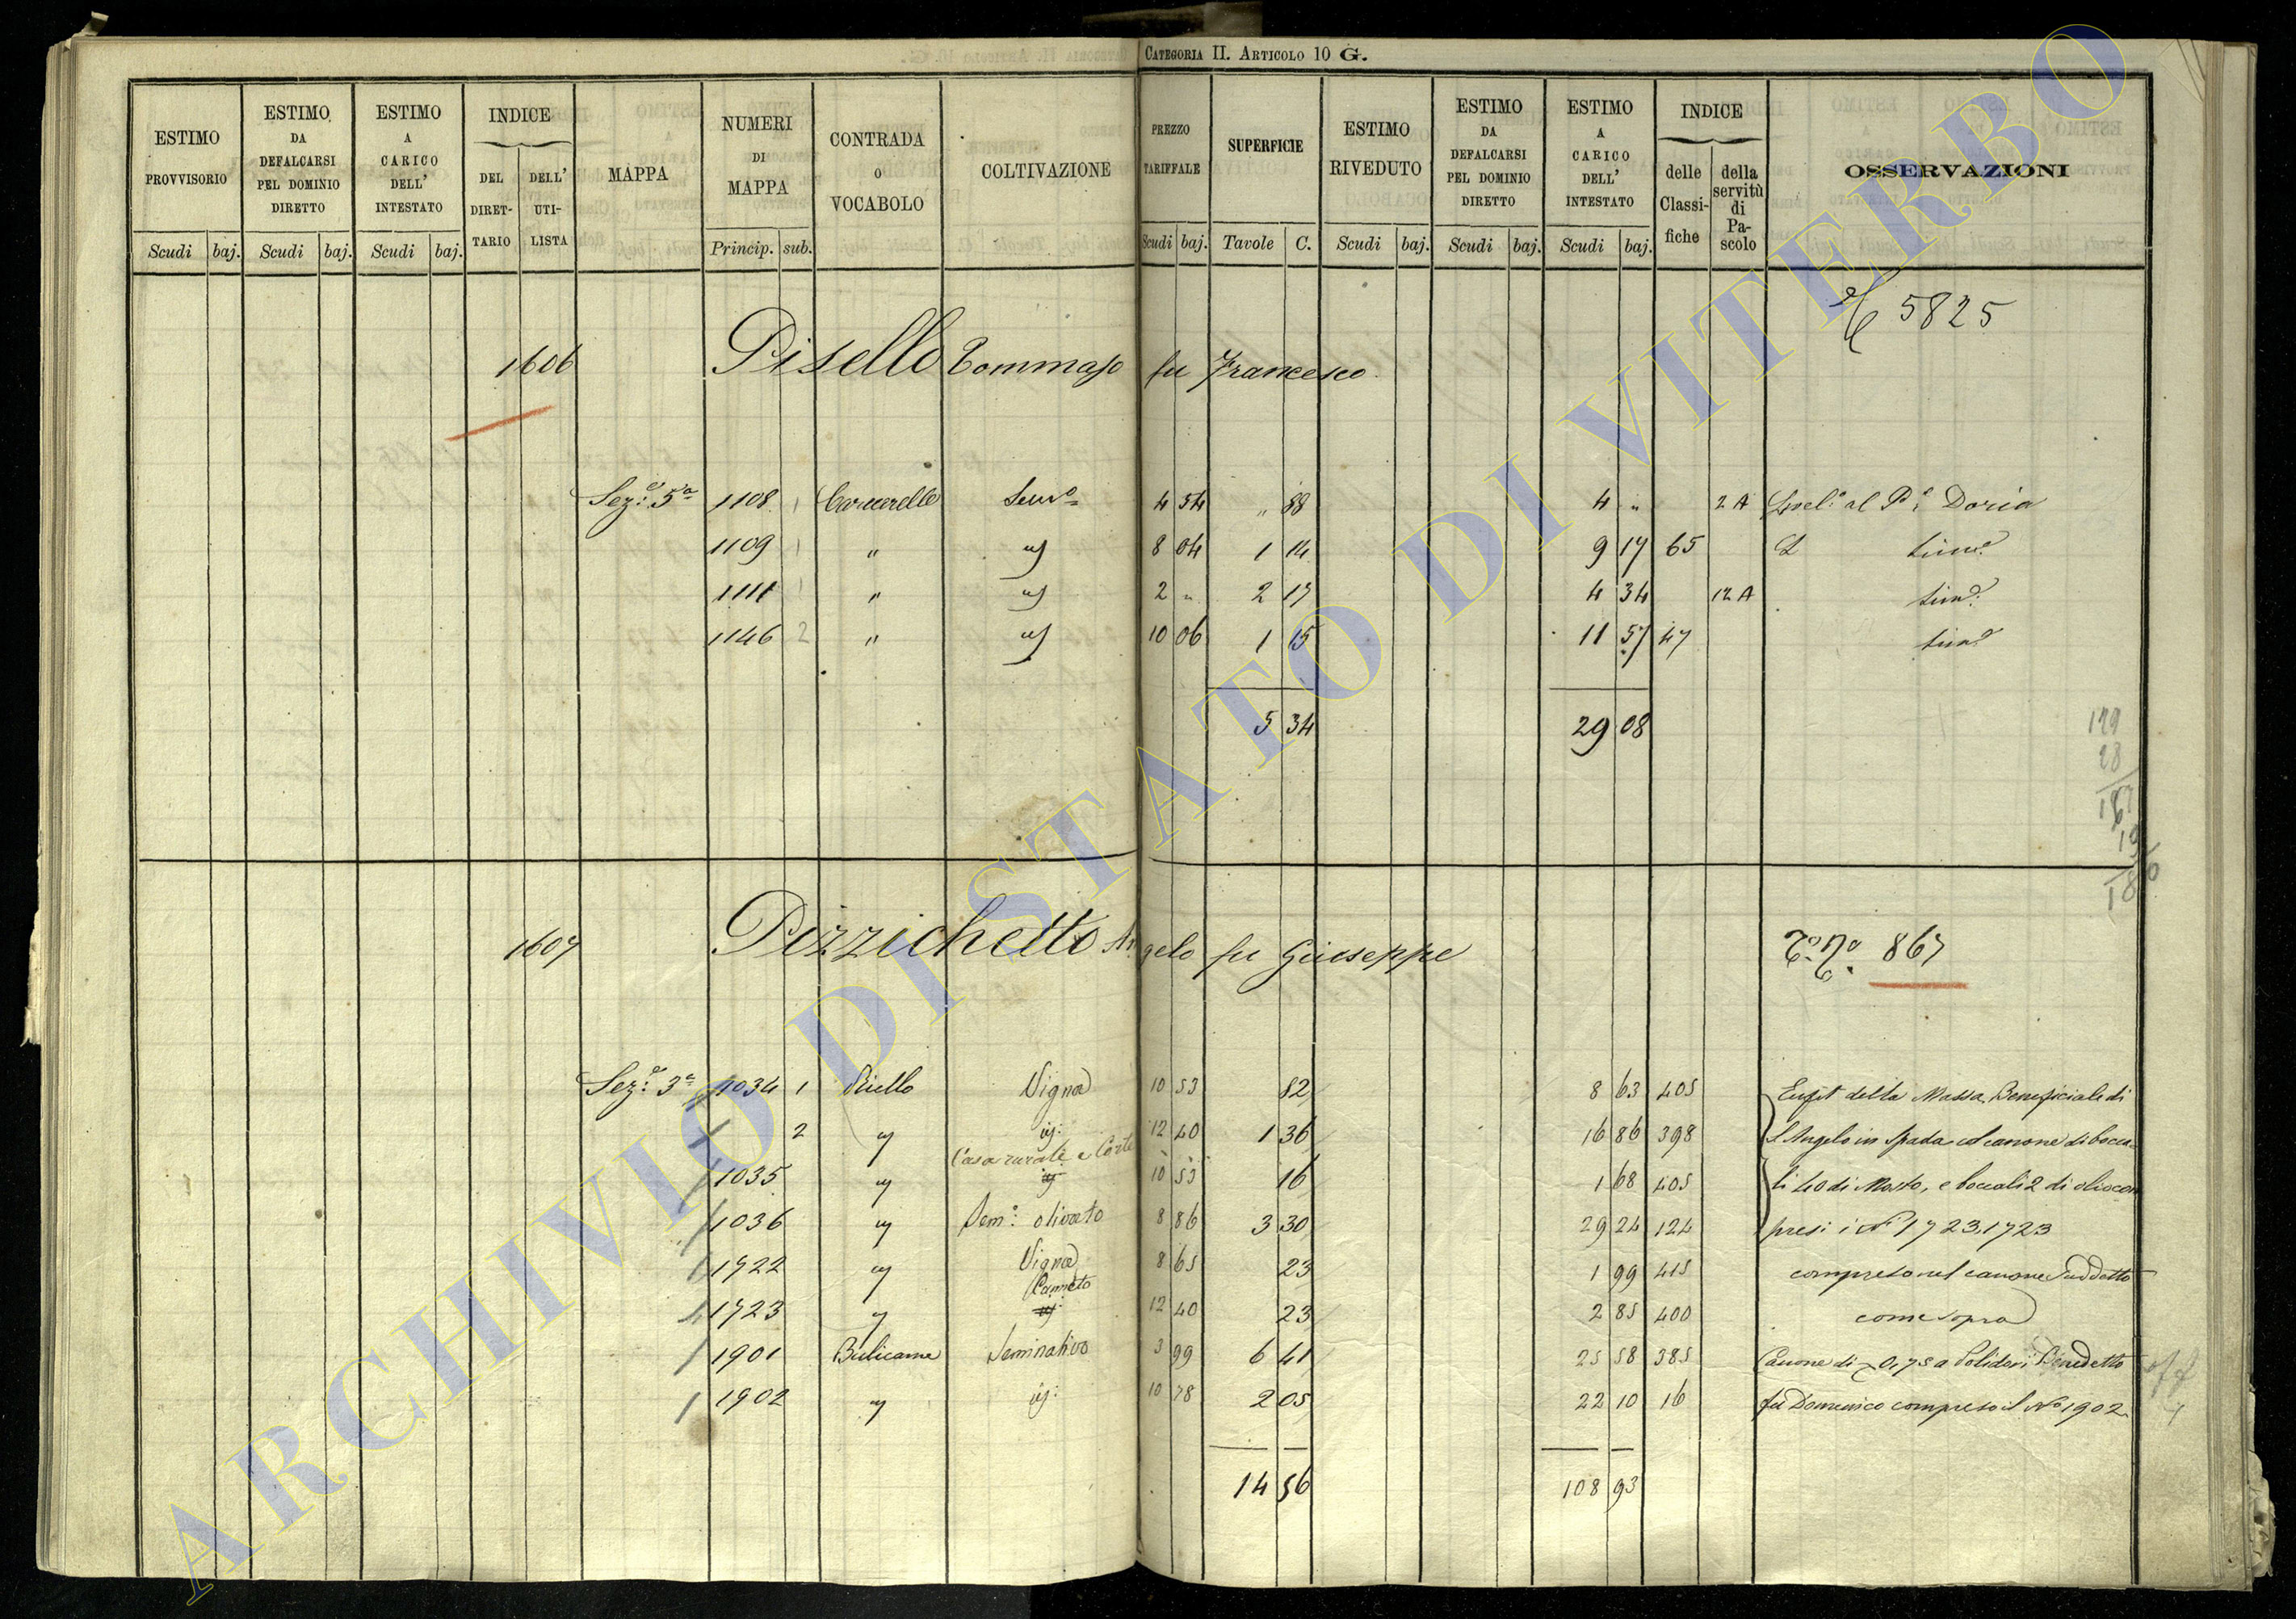 CATEGORIA II. ARTICOLO 10 G.
ESTIMO PROVVISORIO Scudi baj.
ESTIMO DA DEFALCARSI PEL DOMINIO DIRETTO Scudi baj.
ESTIMO A CARICO DELL' INTESTATO Scudi baj.
INDICE DEL DIRET-TARIO DELL' UTI-LISTA
MAPPA
NUMERI DI MAPPA Princip. sub.
CONTRADA O VOCABOLO
COLTIVAZIONE
PREZZO TARIFFALE Scudi baj.
SUPERFICIE Tavole C.
ESTIMO RIVEDUTO Scudi baj.
ESTIMO DA DEFALCARSI PEL DOMINIO DIRETTO Scudi baj.
ESTIMO A CARICO DELL' INTESTATO Scudi baj.
INDICE delle Classi-fiche della servitù di Pa-scolo
OSSERVAZIONI
5825
1606 Pisello Tommaso fu Francesco
Sez.e 5a 1108 1 4 54 " 88 4 " 2 A al Pe Doria
1109 1 " 8 04 1 14 9 17 65
1111 1 " 2 " 2 17 4 34 12 A
1146 2 " 10 06 1 15 11 57 47
5 34 29 08
1607 Pizzichetto Angelo fu Giuseppe 867
Sez.e 3a 1034 1 Riello Vigna 10 53 82 8 63 405 Enfit della Massa Beneficiale di
2 " id: 12 40 1 36 16 86 398 S Angelo in Spada col canone di bocca-
1035 " Casa rurale e Corte 10 53 16 1 68 405 li 40 di Mosto, e boccali 2 di olio com
1036 " Sem.o olivato 8 86 3 30 29 24 124 presi i Ni 1723, 1723
1722 " Vigna 8 65 23 1 99 415 compreso nel canone Suddetto
1723 " Canneto 12 40 23 2 85 400 come sopra
1901 Bulicame Seminativo 3 99 6 41 25 58 385 Canone di 0,75 a Polidori Benedetto
1902 " id: 10 78 2 05 22 10 16 fu Domenico compreso il No 1902
14 56 108 93
ARCHIVIO DI STATO DI VITERBO